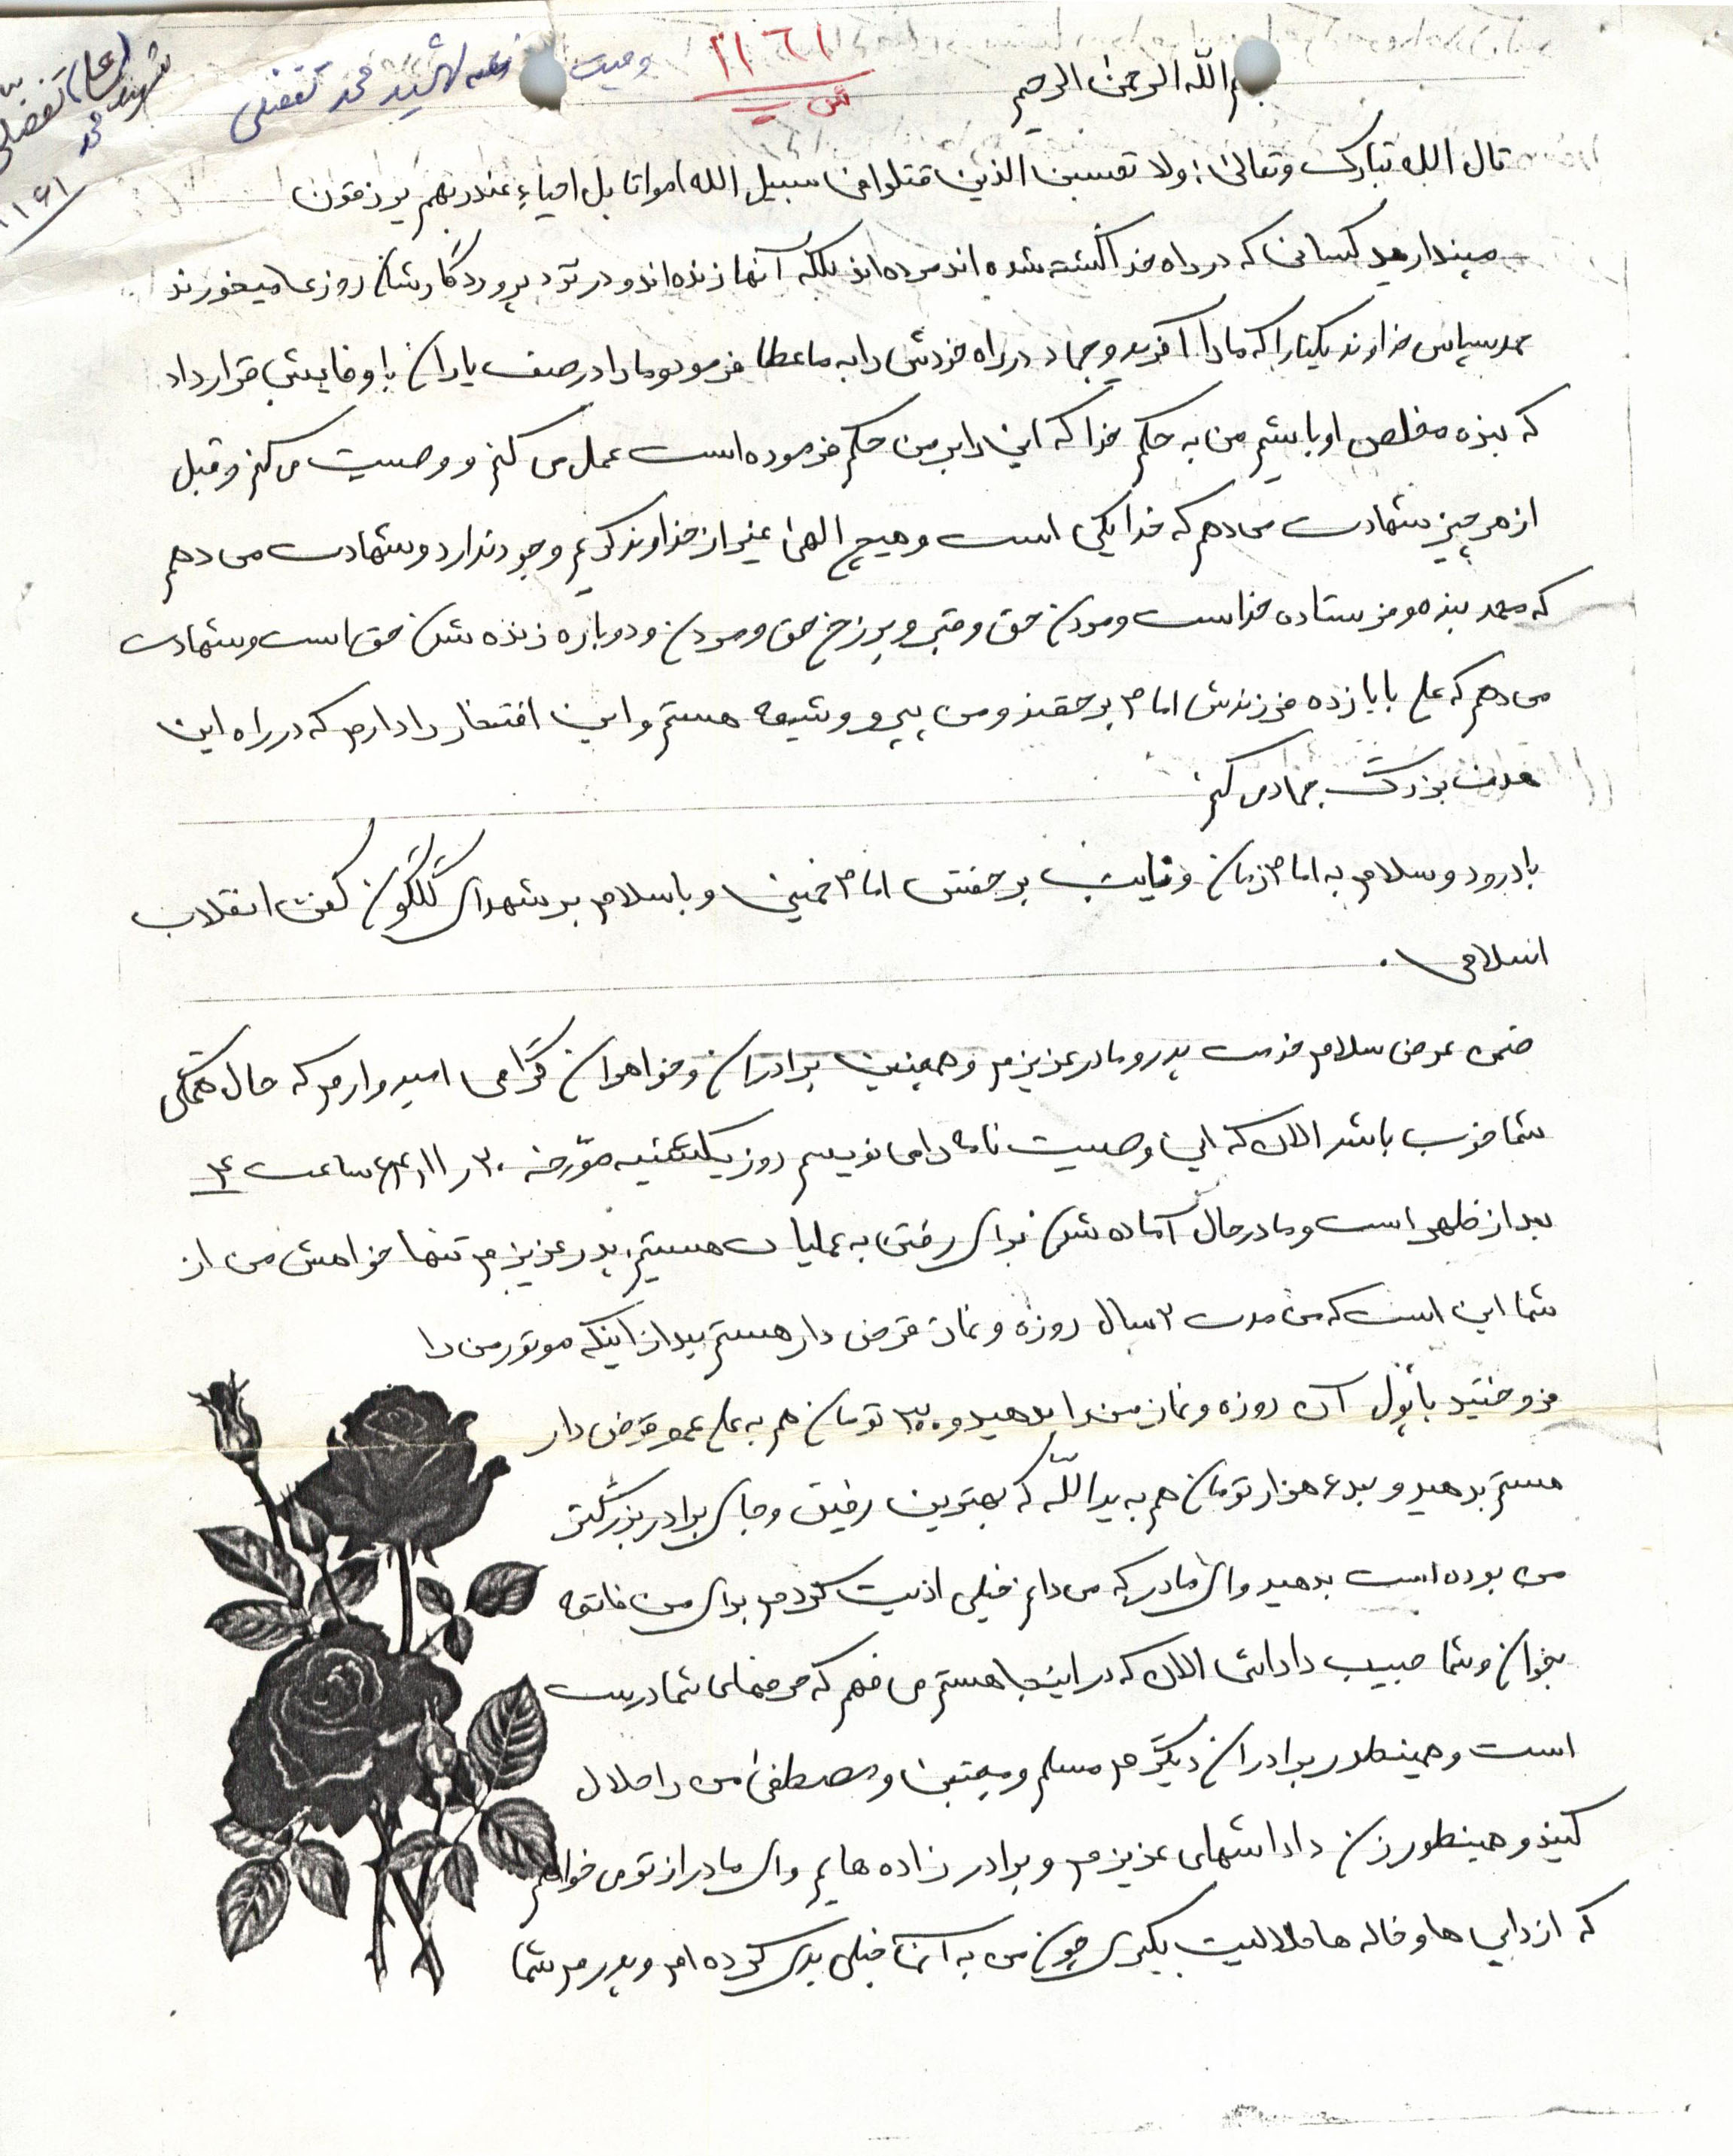 وصیت نامه شهید محمد تفضلی
۲۱۶۱
بسم الله الرحمن الرحیم
قال الله تبارک وتعالی: ولا تحسبن الذین قتلوا فی سبیل الله امواتا بل احیاء عند ربهم یرزقون
مپندارید کسانی که در راه خدا کشته شده اند مرده اند بلکه آنها زنده اند و در نزد پروردگارشان روزی میخورند
حمد سپاس خداوند یکتا را که ما را آفرید و جهاد در راه خودش را به ما عطا فرمود و ما را در صف یاران با وفایش قرار داد
که بنده مخلص او باشیم من به حکم خدا که این را بر من حکم فرموده است عمل می کنم و وصیت می کنم و قبل
از هر چیز شهادت می دهم که خدا یکی است و هیچ الهی غیر از خداوند کریم وجود ندارد و شهادت می دهم
که محمد بنده و فرستاده خداست و مردن حق و قبر و برزخ حق و مردن و دوباره زنده شدن حق است و شهادت
می دهم که علی با یازده فرزندش امام برحقند و من پیرو و شیعه هستم و این افتخار را دارم که در راه این
هدف بزرگ جهاد می کنم
با درود و سلام به امام زمان و نایب بر حقش امام خمینی و با سلام بر شهدای گلگون کفن انقلاب
اسلامی.
ضمن عرض سلام خدمت پدر و مادر عزیزم و همچنین برادران و خواهران گرامی امیدوارم که حال همگی
شما خوب باشد الان که این وصیت نامه را می نویسم روز یکشنبه مورخه ۲۰ ر ۱۱ ر ساعت ۴
بعد از ظهر است و ما در حال آماده شدن برای رفتن به عملیات هستیم. پدر عزیزم تنها خواهش من از
شما این است که من مدت ۲ سال روزه و نماز قرض دار هستم بعد از اینکه موتور من را
فروختید با پول آن روزه و نماز من را بدهید و تومان هم به علی عمو قرض دار
هستم بدهید و بعد ۶ هزار تومان هم به یدالله که بهترین رفیق و جای برادر بزرگتر
من بوده است بدهید وای مادر که می دانم خیلی اذیت کردم برای من فاتحه
بخوان و شما حبیب داداش الان که در اینجا هستم می فهم که حرفهای شما درست
است و همینطور برادران دیگرم مسلم و مجتبی و مصطفی من را حلال
کنید و همینطور زن داداشهای عزیزم و برادر زاده هایم وای مادر از تو می خواهم
که از دایی ها و خاله ها حلالیت بگیری چون من به آنها خیلی بدی کرده ام و پدرم شما